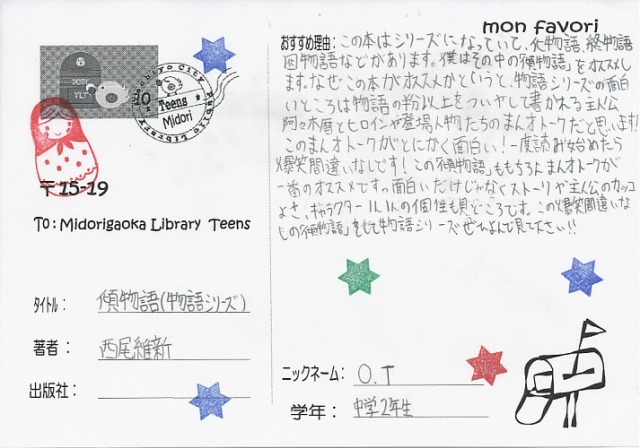 mon favori
おすすめ理由: この本はシリーズになっていて、化物語、終物語
囮物語などがあります。僕はその中の「傾物語」をオススメし
ます。なぜこの本がオススメかというと、物語シリーズの面白
いところは物語の約以上をついやして書かれる主人公
阿々木暦とヒロインや登場人物たちのまんオトークだと思います!
このまんオトークがとにかく面白い!一度読み始めたら
爆笑間違いなしです!この「傾物語」ももちろんまんオトークが
一番のオススメですっ面白いだけじゃなくストーリーや主人公のカッコ
よさ、キャラクター1人1人の個性も見どころです。この爆笑間違いな
しの「傾物語」をもて物語シリーズぜひよんで見て下さい!!
POST
YLT
10
Teens
Midori
〒15-19
To: Midorigaoka Library Teens
タイトル: 傾物語(物語シリーズ)
著者: 西尾維新
出版社:
ニックネーム: O.T
学年: 中学2年生